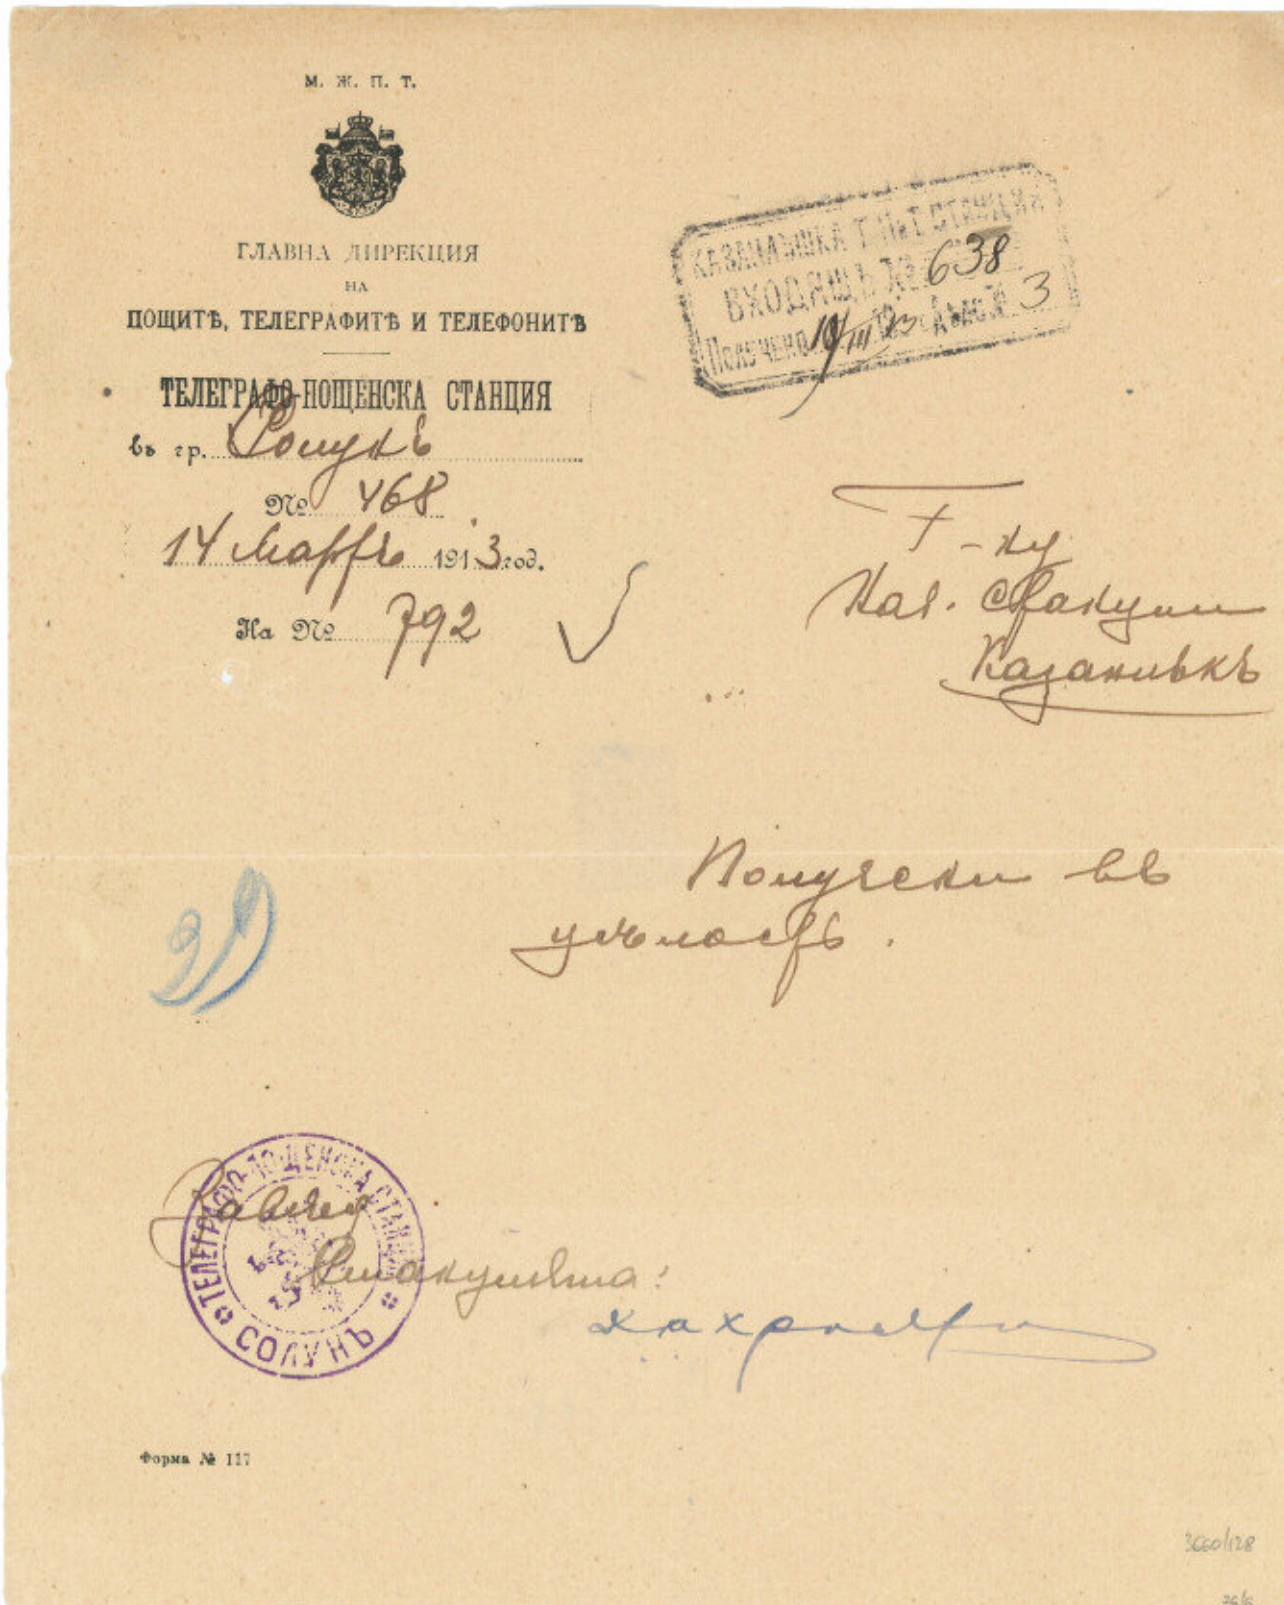 М. Ж. П. Т.
ГЛАВНА ДИРЕКЦИЯ
НА
ПОЩИТѢ, ТЕЛЕГРАФИТѢ И ТЕЛЕФОНИТѢ
ТЕЛЕГРАФО-ПОЩЕНСКА СТАНЦИЯ
въ гр. Солунъ
№ 468
14 Мартъ 1913 год.
На № 792
КАЗАНЛЪШКА Т. П. Т. СТАНЦИЯ
ВХОДЯЩЪ № 638
Получено 19/III 1913 Дѣло № 3
Г-ну
Нач. станции
Казанлъкъ
Получени въ
цѣлость.
ТЕЛЕГРАФО-ПОЩЕНСКА СТАНЦИЯ
СОЛУНЪ
Завѣд
Станцията:
Форма № 117
3660/128